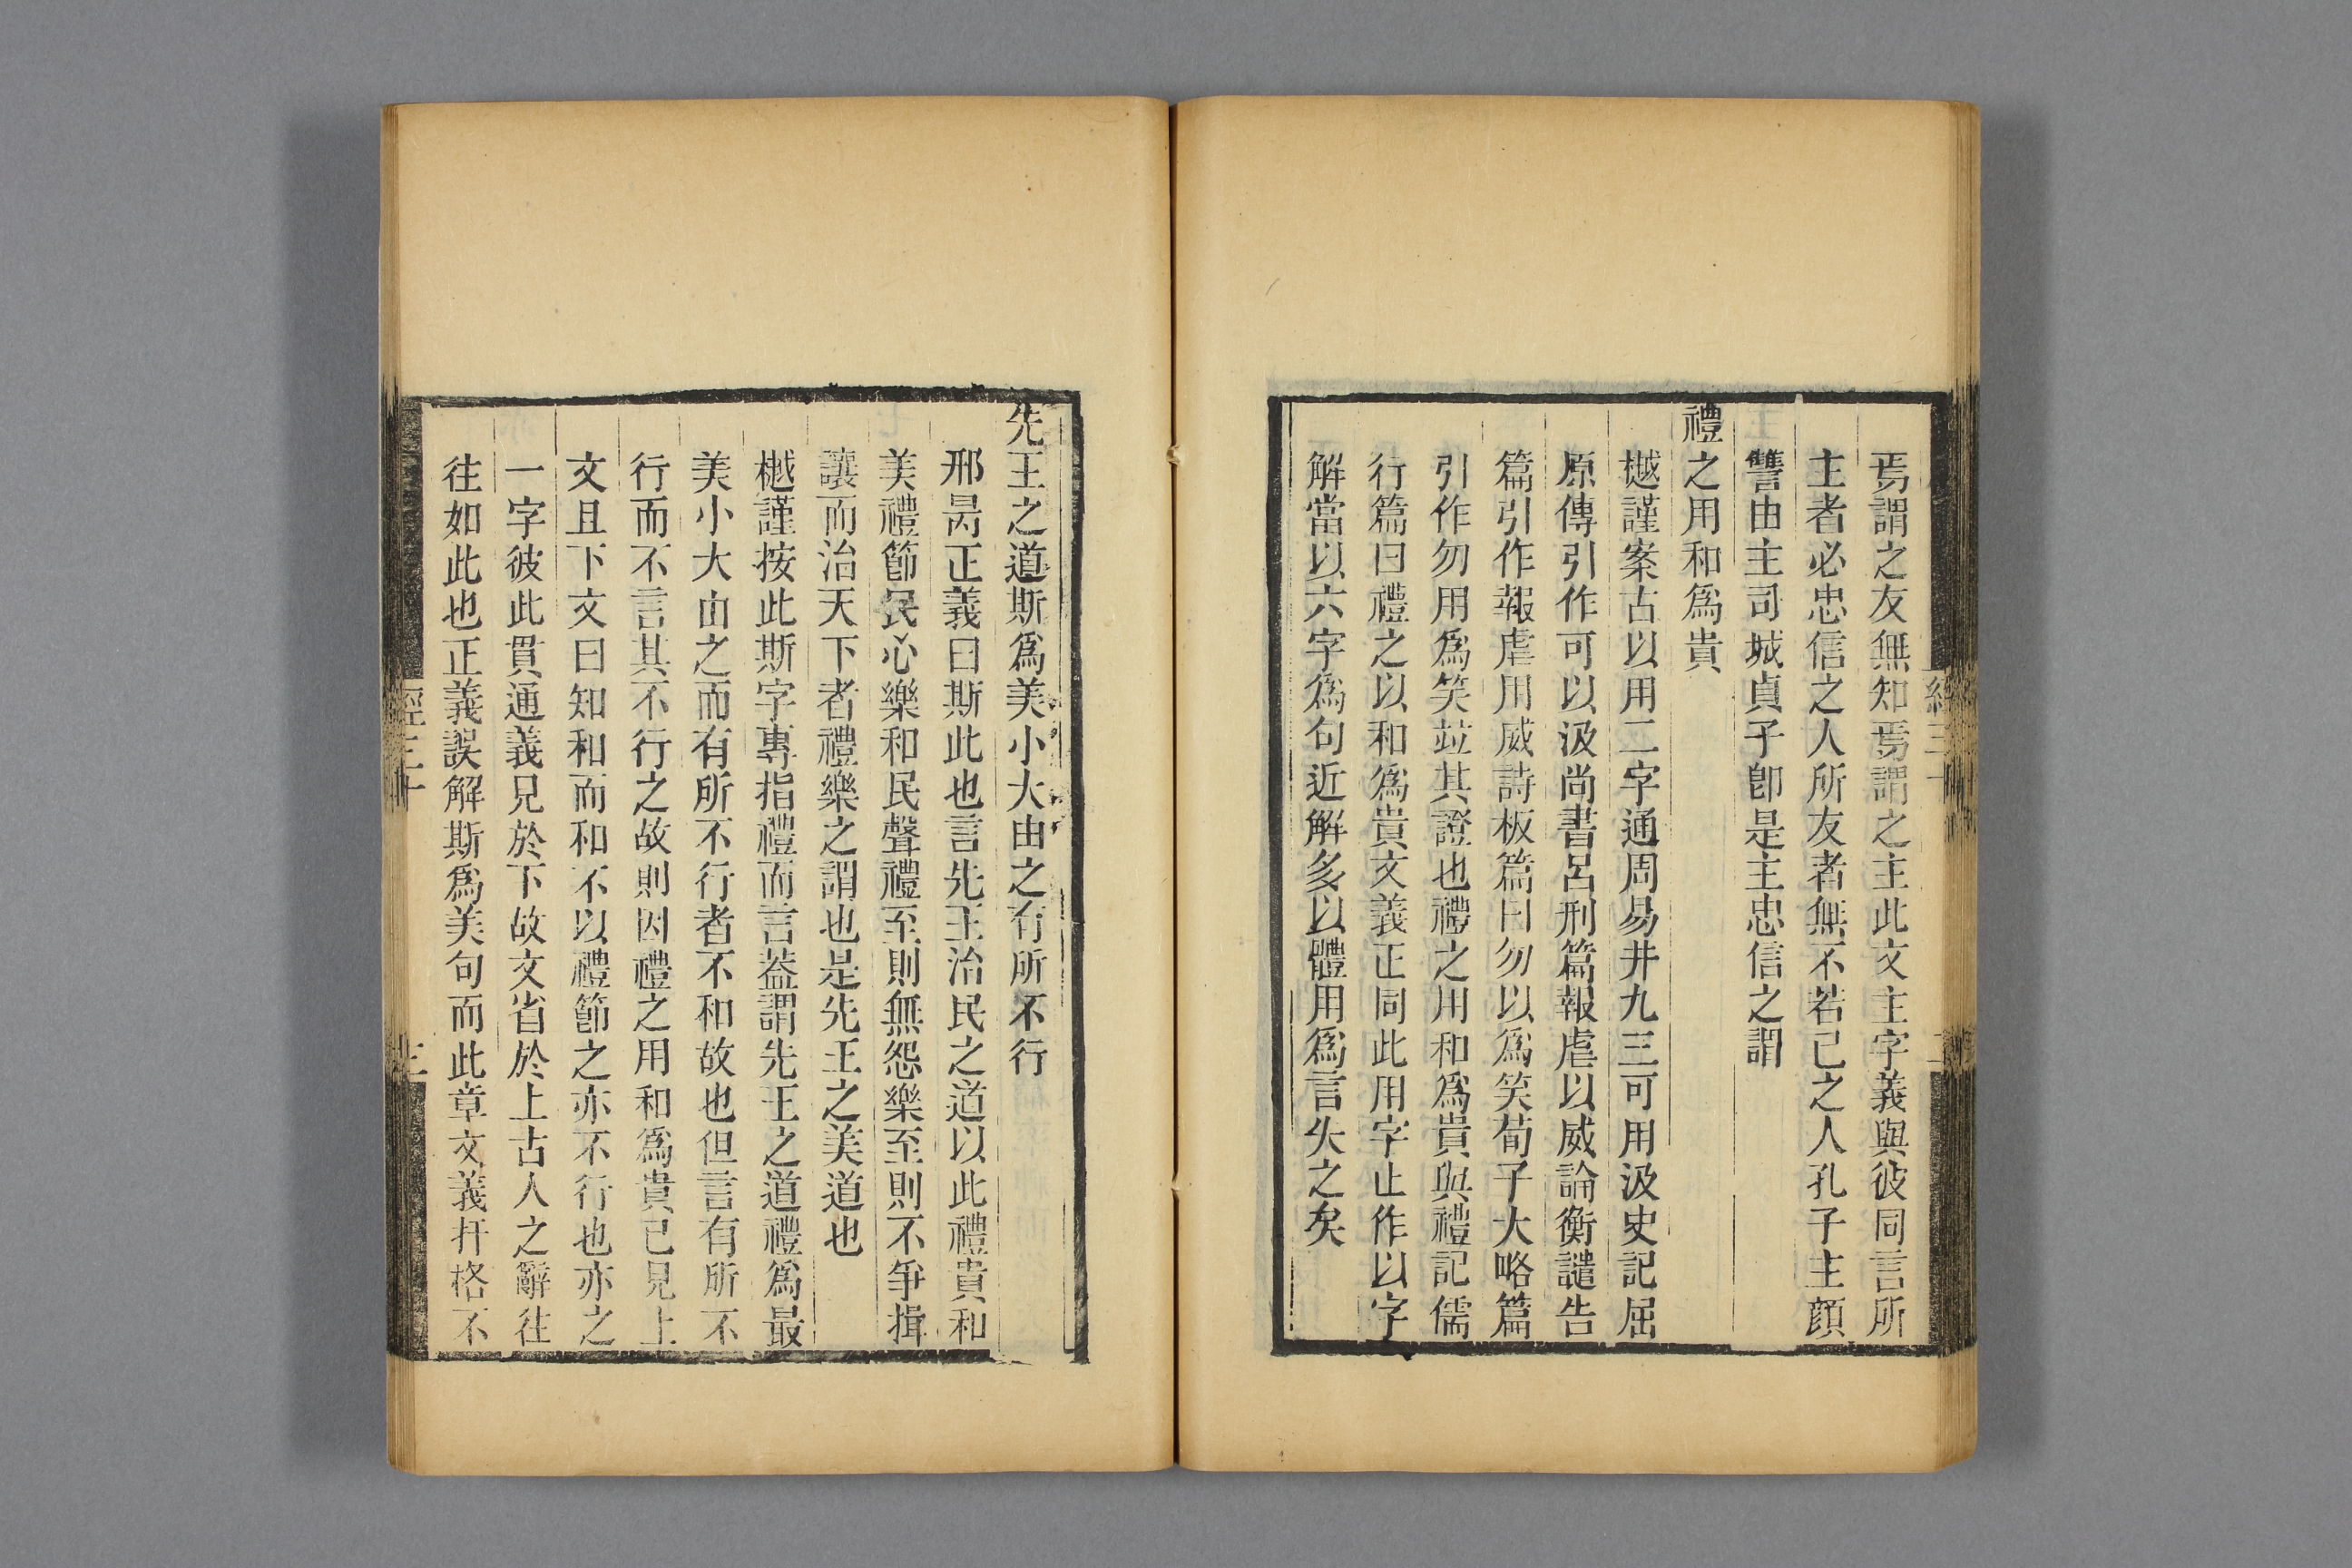 焉謂之友無知焉謂之主此文主字義與彼同言所
主者必忠信之人所友者無不若己之人孔子主顔
讐由主司城貞子卽是主忠信之謂
禮之用和爲貴
樾謹案古以用二字通周易井九三可用汲史記屈
原傳引作可以汲尚書呂刑篇報虐以威論衡譴告
篇引作報虐用威詩板篇曰勿以爲笑荀子大略篇
引作勿用爲笑竝其證也禮之用和爲貴與禮記儒
行篇曰禮之以和爲貴文義正同此用字止作以字
解當以六字爲句近解多以體用爲言失之矣
先王之道斯爲美小大由之有所不行
邢昺正義曰斯此也言先王治民之道以此禮貴和
美禮節民心樂和民聲禮至則無怨樂至則不爭揖
讓而治天下者禮樂之謂也是先王之美道也
樾謹按此斯字專指禮而言葢謂先王之道禮爲最
美小大由之而有所不行者不和故也但言有所不
行而不言其不行之故則因禮之用和爲貴已見上
文且下文曰知和而和不以禮節之亦不行也亦之
一字彼此貫通義見於下故文省於上古人之辭往
往如此也正義誤解斯爲美句而此章文義扞格不
經三十
三